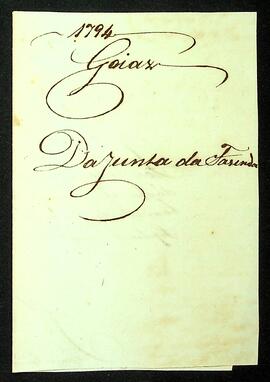 1794
Goiaz
Da Junta da Fazenda